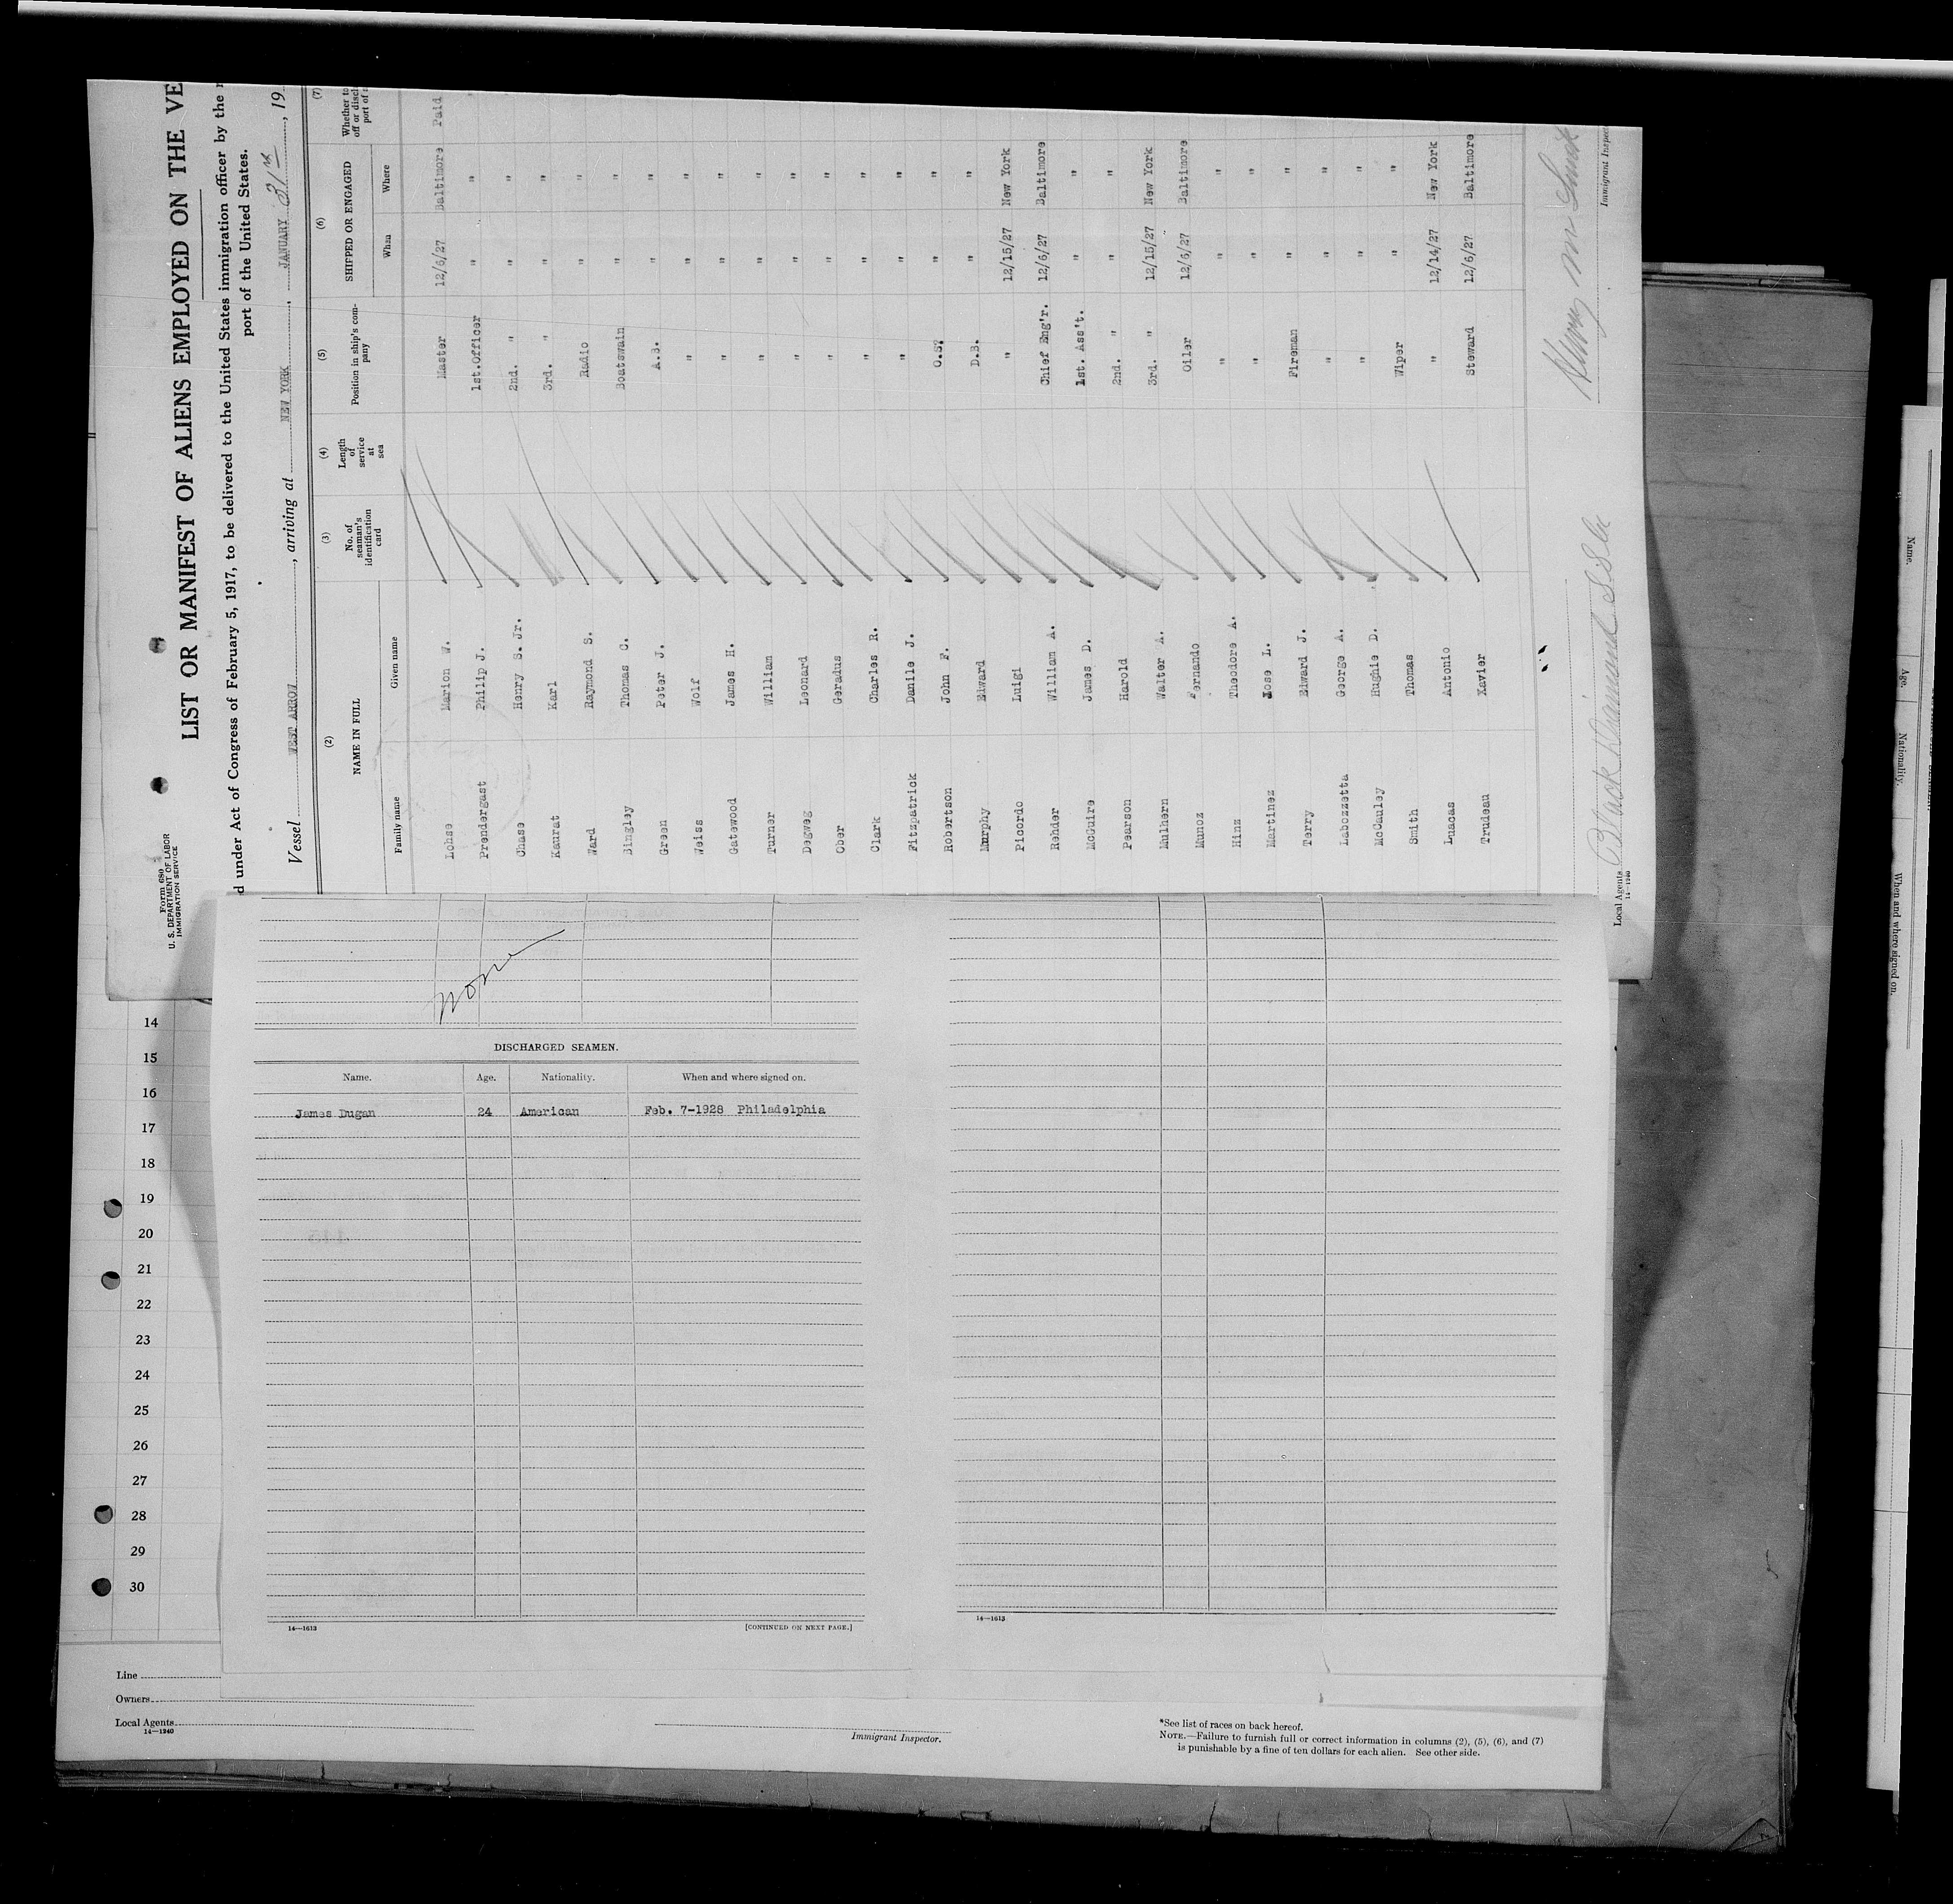 Form 689
U. S. DEPARTMENT OF LABOR
IMMIGRATION SERVICE
LIST OR MANIFEST OF ALIENS EMPLOYED ON THE VE
d under Act of Congress of February 5, 1917, to be delivered to the United States immigration officer by the
port of the United States.
Vessel WEST ARROW, arriving at NEW YORK, JANUARY 31st, 19
(2) (3) (4) (5) (6) (7)
NAME IN FULL No. of seaman's identification card Length of service at sea Position in ship's company SHIPPED OR ENGAGED Whether to
off or disch
port of
Family name Given name When Where
Lohse Marion W. Master 12/6/27 Baltimore Paid
Prendergast Philip J. 1st.Officer " "
Chase Henry S. Jr. 2nd. " " "
Kaurat Karl 3rd. " " "
Ward Raymond S. Radio " "
Bingley Thomas C. Boatswain " "
Green Peter J. A.B. " "
Weiss Wolf " " "
Gatewood James H. " " "
Turner William " " "
Degweg Leonard " " "
Ober Geradus " " "
Clark Charles R. " " "
Fitzpatrick Danile J. " " "
Robertson John F. O.S. " "
Murphy Edward D.B. " "
Picordo Luigi " 12/15/27 New York
Rehder William A. Chief Eng'r. 12/6/27 Baltimore
McGuire James D. 1st. Ass't. " "
Pearson Harold 2nd. " " "
Mulhern Walter A. 3rd. " 12/15/27 New York
Munoz Fernando Oiler 12/6/27 Baltimore
Hinz Theodore A. " " "
Martinez Jose L. " " "
Terry Edward J. Fireman " "
Labozzetta George A. " " "
McCauley Hughie D. " " "
Smith Thomas Wiper " "
Luacas Antonio " 12/14/27 New York
Trudeau Xavier Steward 12/6/27 Baltimore
Local Agents Black Diamond SS Co
14—1240
Immigrant Inspec
none
DISCHARGED SEAMEN.
Name. Age. Nationality. When and where signed on.
James Dugan 24 American Feb. 7-1928 Philadelphia
14—1613
[CONTINUED ON NEXT PAGE.]
14—1613
14
15
16
17
18
19
20
21
22
23
24
25
26
27
28
29
30
Line
Owners
Local Agents
14—1240
Immigrant Inspector.
*See list of races on back hereof.
NOTE.—Failure to furnish full or correct information in columns (2), (5), (6), and (7)
is punishable by a fine of ten dollars for each alien. See other side.
Name. Age. Nationality. When and where signed on.